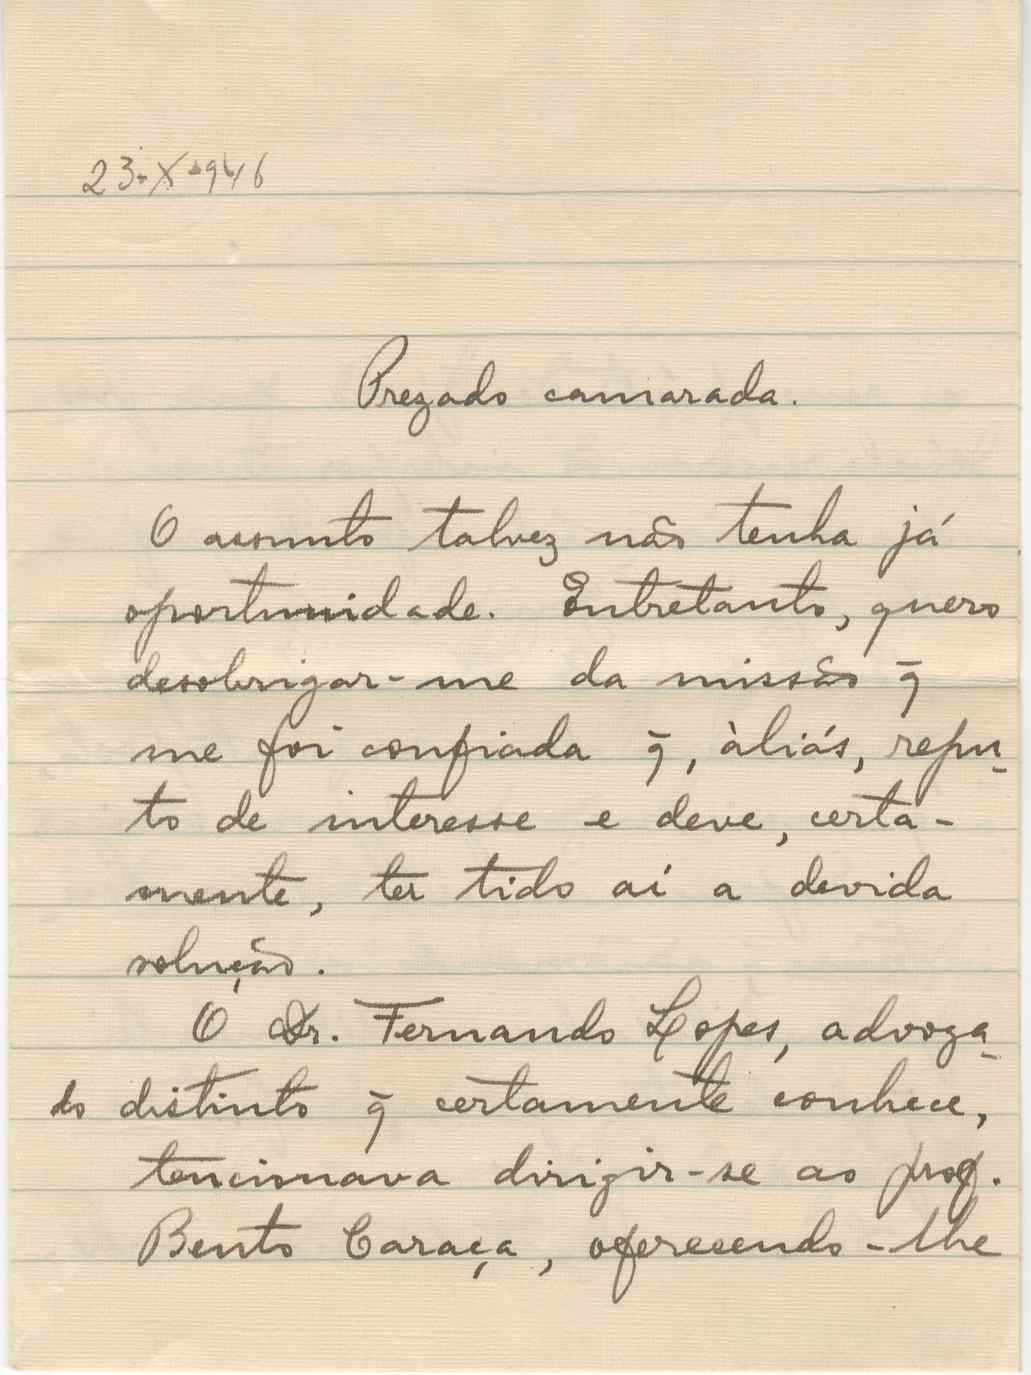 23-X-946
Prezado camarada.
O assunto talvez não tenha já
oportunidade. Entretanto, quero
desobrigar-me da missão q̄
me foi confiada q̄, àliás, repu-
to de interesse e deve, certa-
mente, ter tido aí a devida
solução.
O Dr. Fernando Lopes, advoga-
do distinto q̄ certamente conhece,
tencionava dirigir-se ao prof.
Bento Caraça, oferecendo-lhe